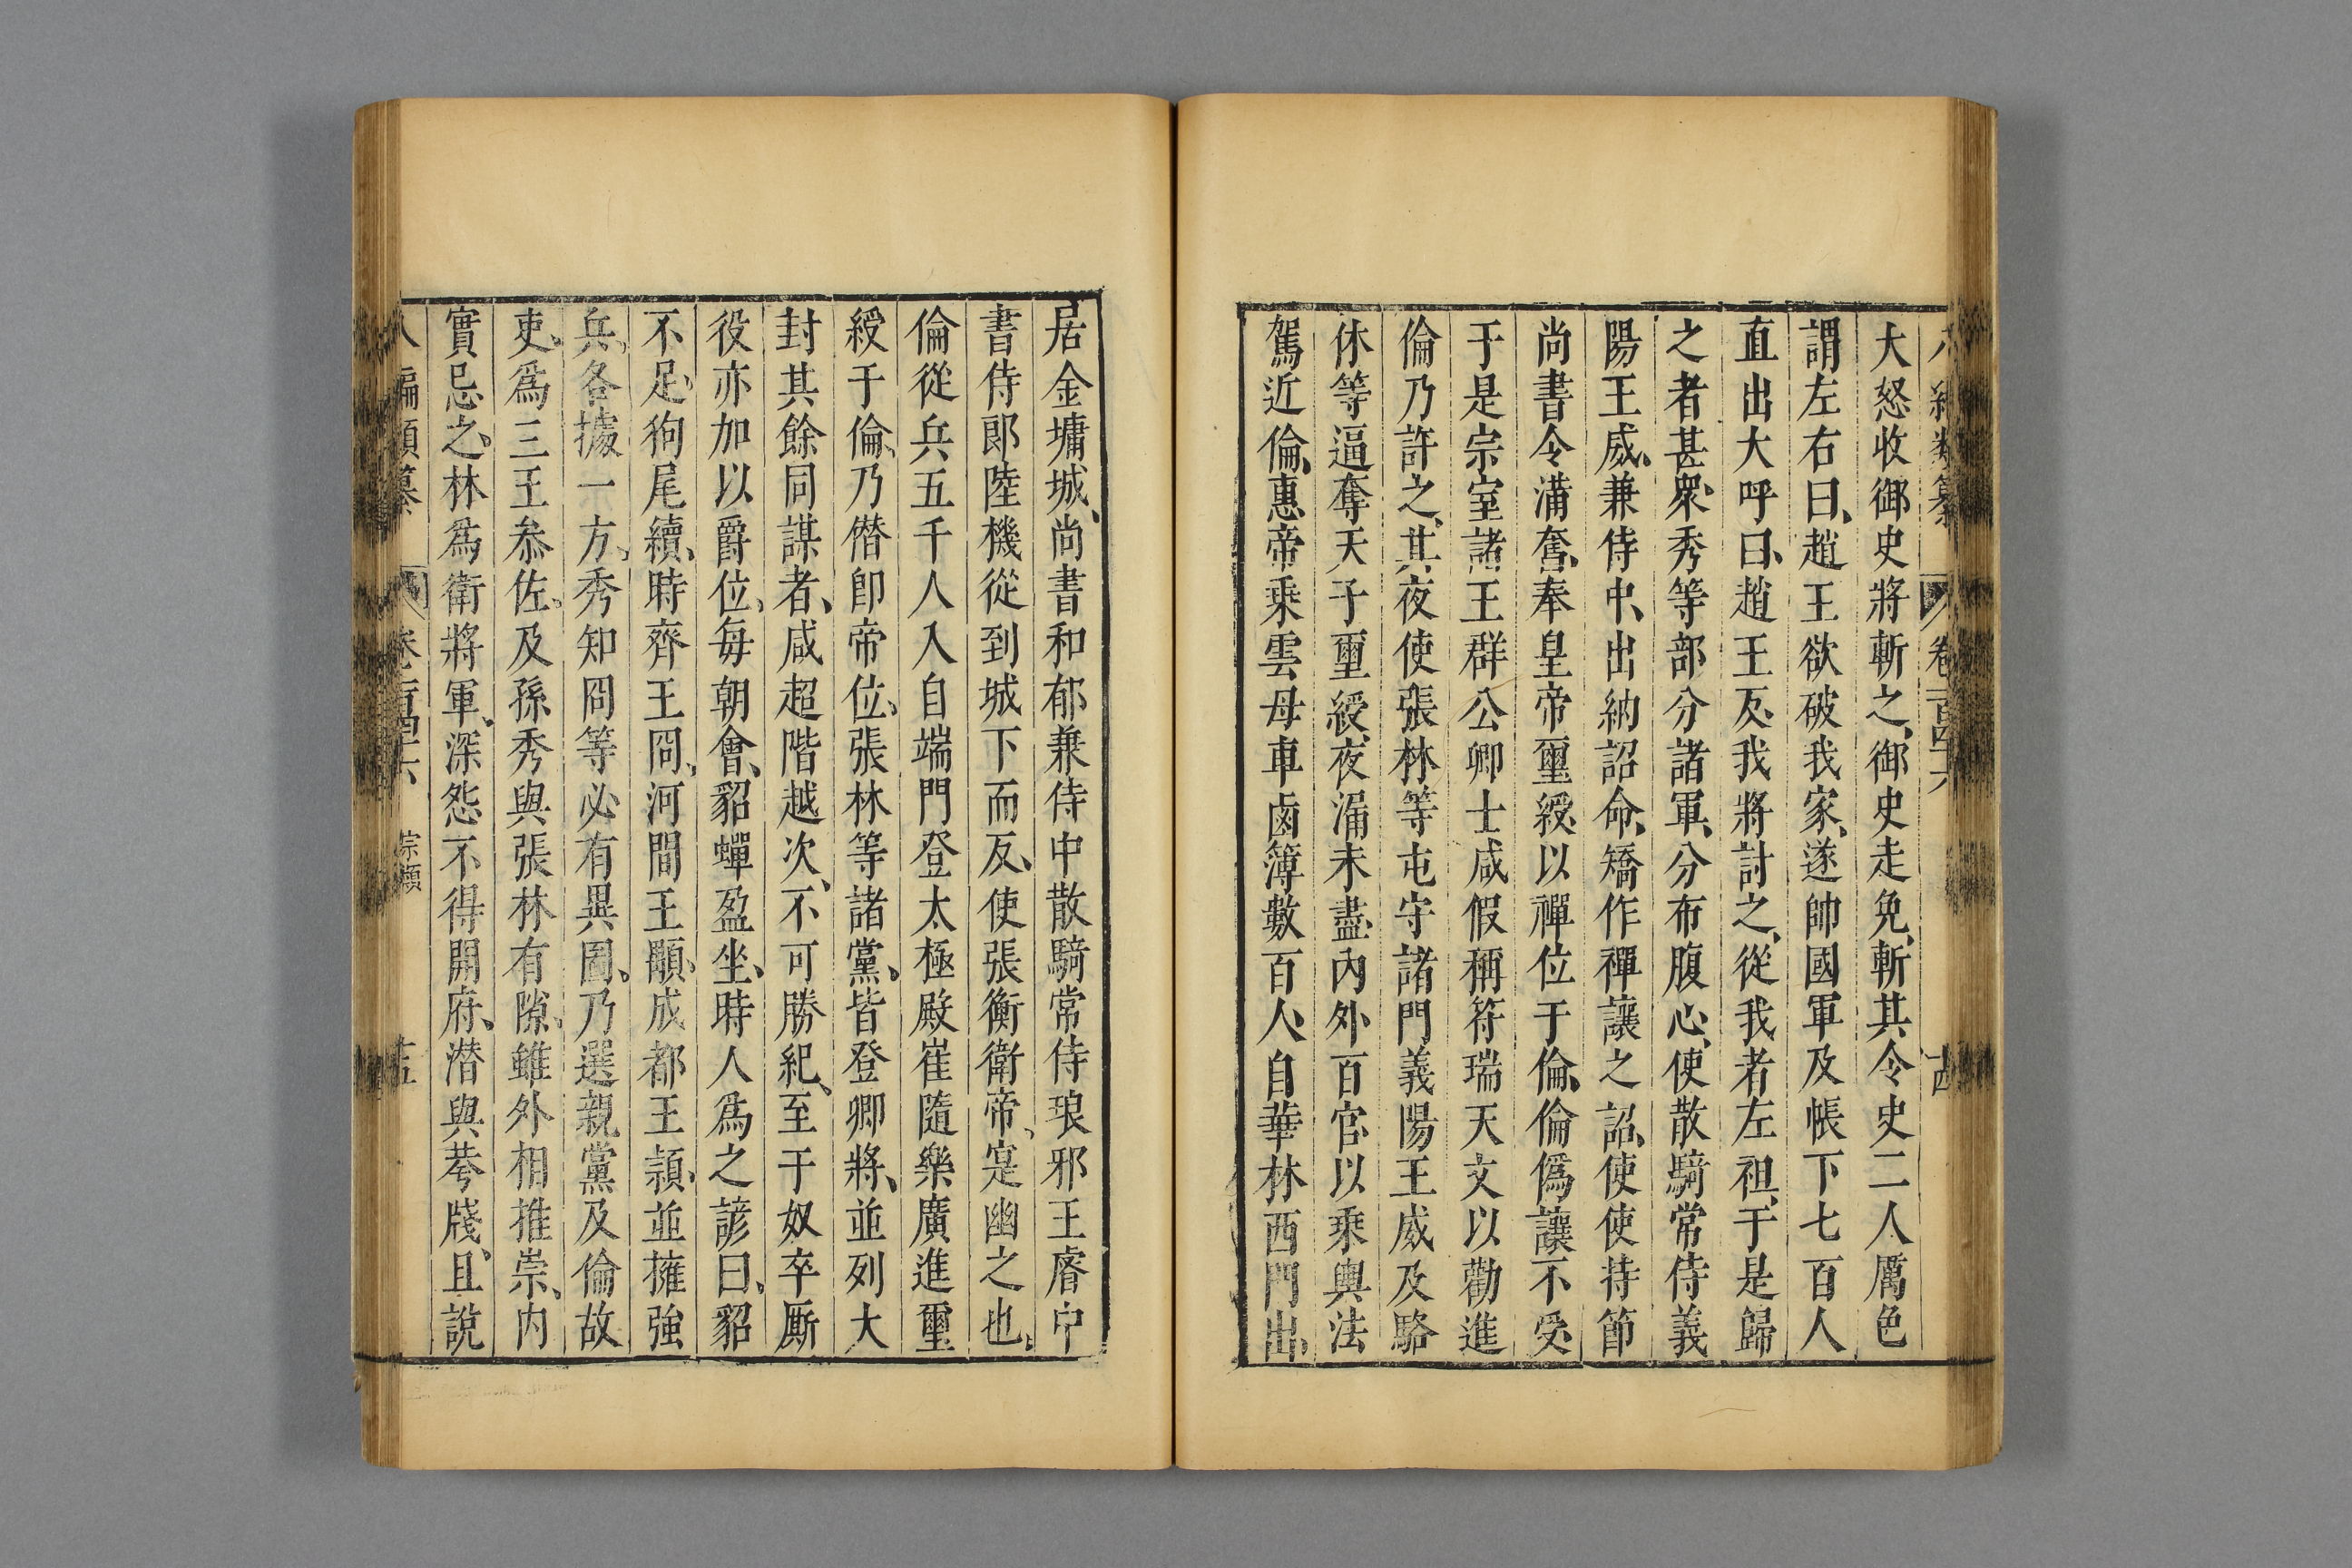 大怒收御史將斬之、御史走免、斬其令史二人厲色
謂左右曰、趙王欲破我家、遂帥國軍及帳下七百人
直出大呼曰、趙王反、我將討之、從我者左袒、于是歸
之者甚衆、秀等部分諸軍、分布腹心、使散騎常侍義
陽王威、兼侍中、出納詔命、矯作禪讓之詔、使使持節
尚書令滿奮、奉皇帝璽綬、以禪位于倫、倫僞讓不受、
于是宗室諸王群公卿士咸假稱符瑞天文以勸進
倫乃許之、其夜使張林等屯守諸門義陽王威及駱
休等逼奪天子璽綬、夜漏未盡、內外百官、以乘輿法
駕近倫、惠帝乗雲母車鹵簿數百人、自華林西門出、
居金墉城、尚書和郁兼侍中散騎常侍琅邪王睿中
書侍郎陸機從到城下而反、使張衡衛帝、寔幽之也、
倫從兵五千人入自端門登太極殿崔隨樂廣進璽
綬于倫、乃僭卽帝位、張林等諸黨、皆登卿將、並列大
封其餘同謀者、咸超階越次、不可勝紀、至于奴卒厮
役亦加以爵位、每朝會、貂蟬盈坐、時人爲之諺曰、貂
不足、狗尾續、時齊王冏、河間王顒、成都王頴、並擁強
兵、各據一方、秀知冏等必有異圖、乃選親黨及倫故
吏、爲三王叅佐、及孫秀與張林有隙、雖外相推崇、内
實忌之、林爲衛將軍、深怨不得開府、潛與荂牋、且說
卷一百四十六